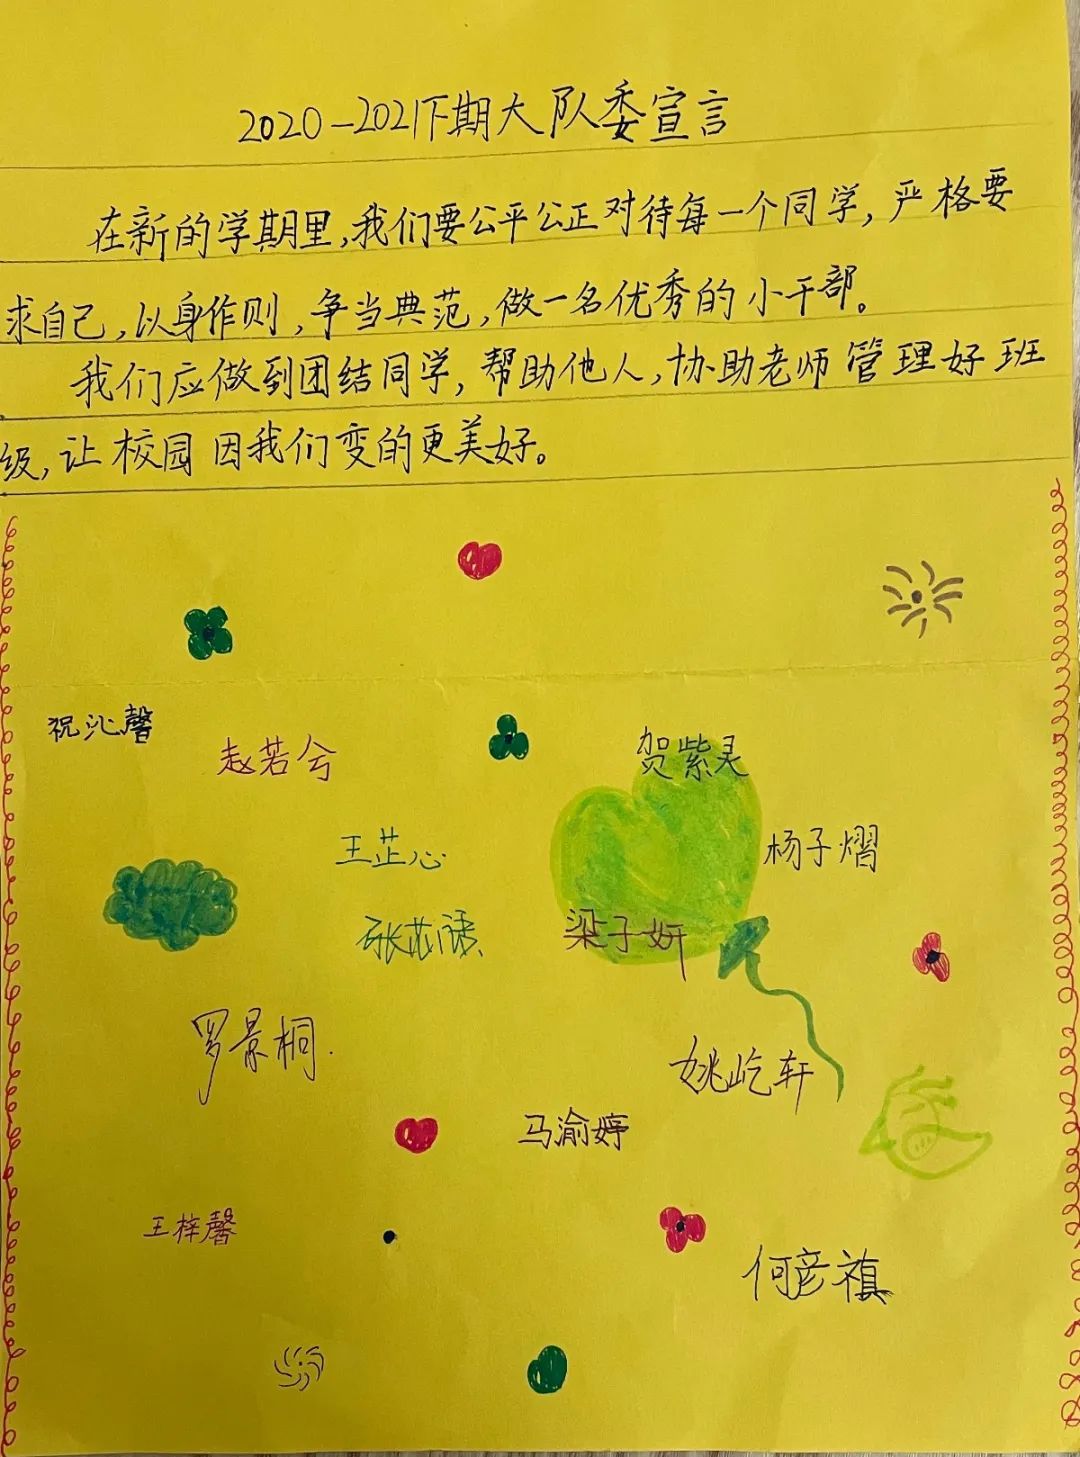 2020-2021下期大队委宣言
在新的学期里,我们要公平公正对待每一个同学,严格要
求自己,以身作则,争当典范,做一名优秀的小干部。
我们应做到团结同学,帮助他人,协助老师管理好班
级,让校园因我们变的更美好。
祝沁馨
赵若兮
贺紫灵
王芷心
杨子熠
张芯
梁子妍
罗景桐
姚屹轩
马渝婷
王梓馨
何彦禛